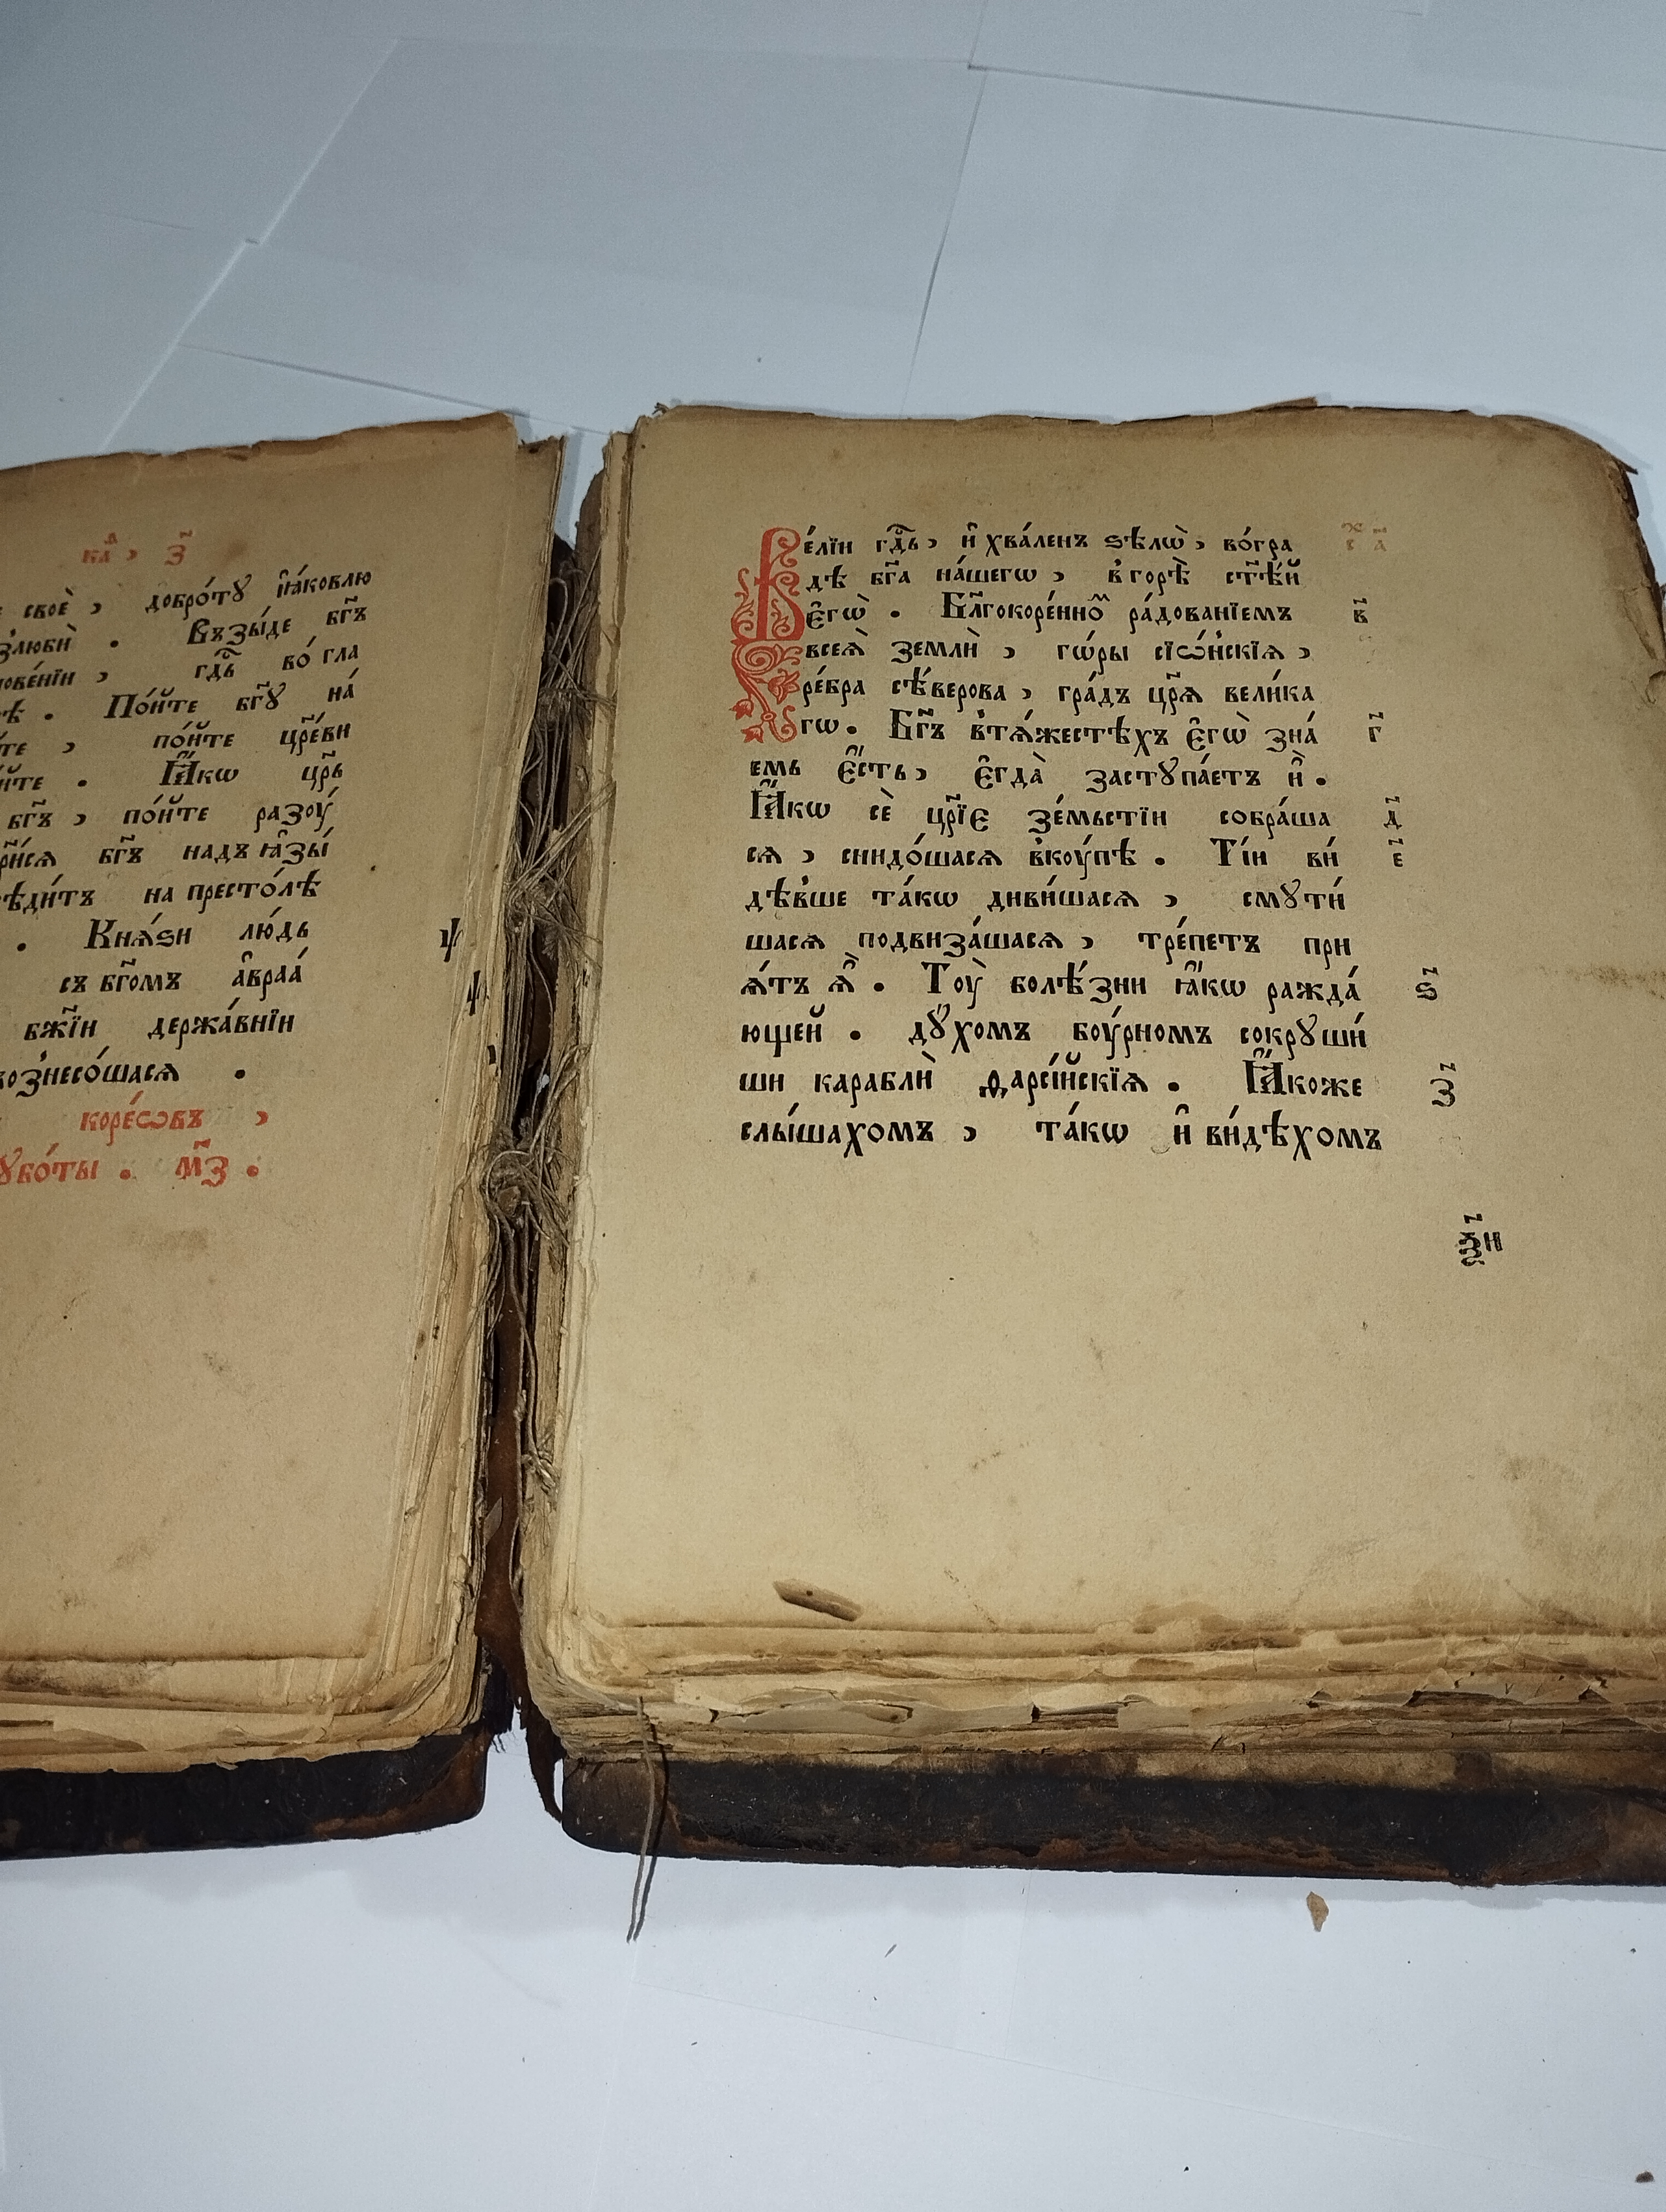 кл҃д , з҃
своѐ , добро́тꙋ і҆а́ковлю
люби̑ . Възы́де бг҃ъ
нове́нїи , гдⷭ҇ь во́ гла
. По́йте бг҃ꙋ на́
, по́йте цр҃е́ви
. Ꙗ҆́кѡ цр҃ь
бг҃ъ , по́йте разоу́
бг҃ъ надъ ꙗ҆зы́
на престо́лѣ
. Кня́ѕи лю́дь
съ бг҃омъ а҆враа́
бж҃їи держа́внїи
вознесо́шася .
коре́ѡвъ ,
ꙋбо́ты . м҃з .
Ве́лїи гдⷭ҇ь , и҆ хва́ленъ ѕѣлѡ̀ , во́гра
дѣ бг҃а на́шегѡ , в҆ горѣ̀ ст҃ѣ́й
є҆гѡ̀ . Бл҃гокоре́нноⷨ ра́дованїемъ в҃
всея̀ землѝ , го́ры сїѡ́н҆скїя ,
ре́бра сѣ́верова , гра́дъ цр҃ѧ вели́ка
гѡ . Бг҃ъ в҆тѧ́жестѣхъ є҆гѡ̀ зна́ г҃
емь є҆́сть , є҆гда̀ застꙋпа́етъ и҆̀ .
Ꙗ҆́кѡ сѐ цр҃їє зе́мьстїи собра́ша д҃
ся , снидо́шася в҆коу́пѣ . Ті́и ви́ е҃
дѣв҆ше та́кѡ диви́шася , смꙋти́
шася подвиза́шася , тре́петъ при
я́тъ ѧ҆̀ . Тоу̀ болѣ́зни ꙗ҆́кѡ ражда́ ѕ҃
ющей . дꙋ́хомъ боу́рномъ сокрꙋши́
ши караблѝ дарсі́йскїя . Ꙗ҆́коже з҃
слы́шахомъ , та́кѡ и҆ ви́дѣхомъ
ѯ҃н